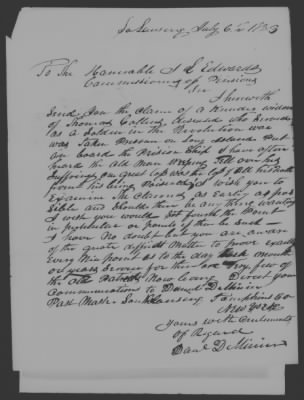 So Lansing July 6th 1853
To The Honorable J L Edwards
Commissioner of Pensions
Sir I herewith
Send you the claim of a
widow
of Thomas Collins Deceased who
as a Soldier in the Revolution was
was Taken Prisoner on Long Island Put
on board the Prison Ship I have often
heard the Old Man Weeping Tell over his
Sufferings
from his being Poisoned I wish you to
Examine the Claim as Early as pos
sible and Should there be any thing wanting
I wish you would set fourth the Point
in particular or points if there be such
I have No doubt but you are aware
of the great difficult Matter to prove exactly
Every Min point as to the day month
or years Service for there are few of
the Old Patriots Now living Direct your
Communications to Daniel DeMinier
Post Master South Lansing Tompkins Co
New York
yours with Sentiments
of Regard
Danl DeMinier